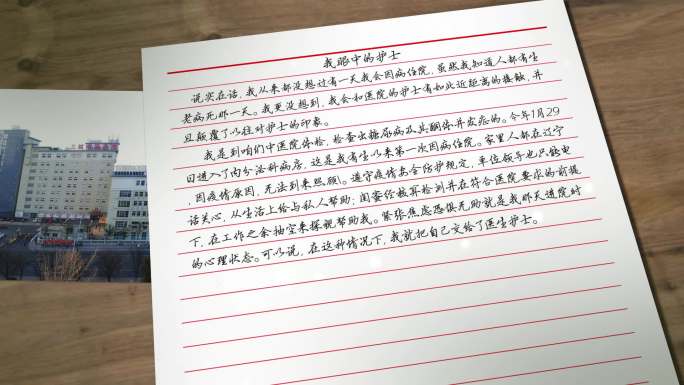 我眼中的护士
说实在话，我从来都没想过有一天我会因病住院，虽然我知道人都有生
老病死那一天。我更没想到，我会和医院的护士有如此近距离的接触，并
且颠覆了以往对护士的印象。
我是到咱们中医院体检，检查出糖尿病以及酮体并发症的。今年1月29
日进入了内分泌科病房，这是我有生以来第一次因病住院。家里人都在辽宁
，因疫情原因，无法到来照顾。遵守疫情安全防护规定，单位领导也只能电
话关心，从生活上给与私人帮助，闺蜜经核算检测并在符合医院要求的前提
下，在工作之余抽空来探视帮助我。紧张焦虑恐惧无助就是我那天进院时
的心理状态。可以说，在这种情况下，我就把自己交给了医生护士。